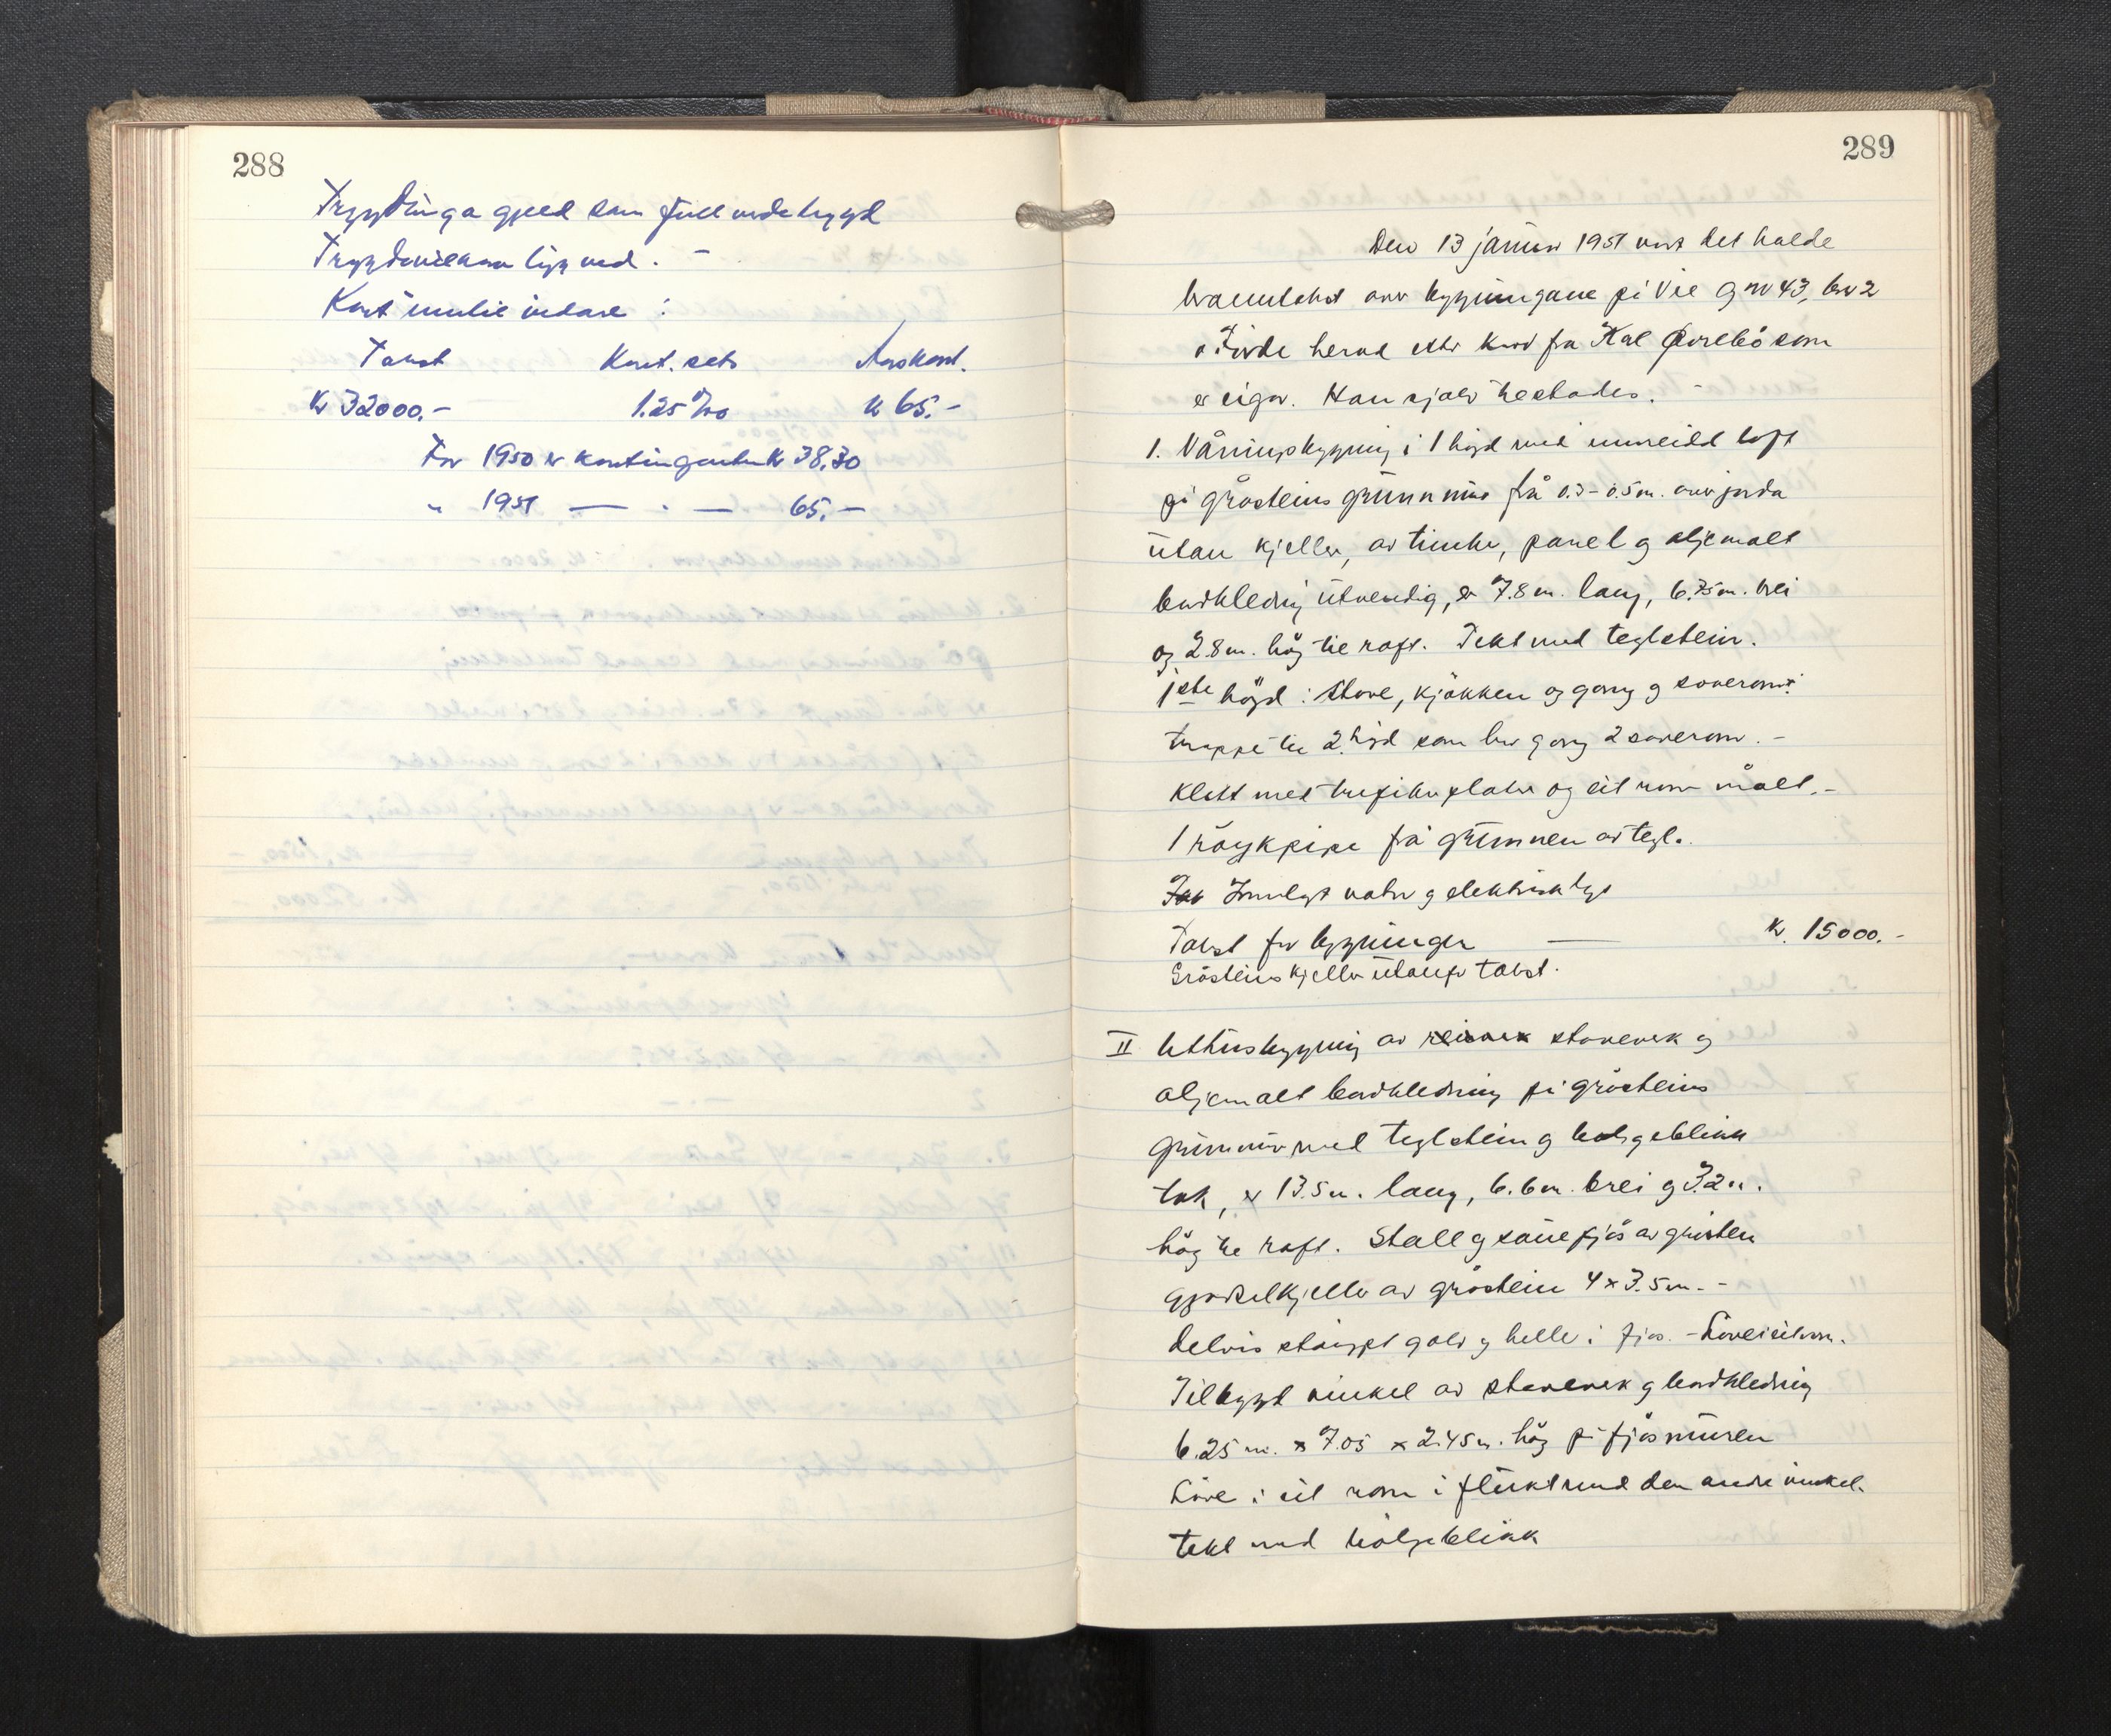 288
Trygdinga gjeld som full verde trygd
Trygdevilkår ligg ved. -
Kont innlie vidare :
Takst Kont. sats Årskont.
Kr 32000.- 1.25 ‰ kr 65.-
For 1950 er kontingenten kr 38.30
" 1951 — " — 65.-
289
Den 13 januar 1951 vart det halde
branntakst over bygningane på Vie gnr 43, bnr 2
i Førde herad etter krav frå Kal Øvrebö som
er eigar. Han sjølv tilstades. -
1. Våningsbygning i 1 högd med innreidd loft
på gråsteins grunnmur frå 0.3 - 0.5 m. over jorda
utan kjeller, av timber, panel og oljemalt
bordkledning utvendig, er 7.8 m. lang, 6.75 m. brei
og 2.8 m. hög til raft. Tekt med teglstein.
1ste högd : Stove, kjökken og gang og soverom
trappe til 2. högd som har gang 2 soverom. -
Kledt med trefiberplater og eit rom målt. -
1 röykpipe frå grunnen av tegl.
Innlagt vatn og elektrisk lys
Takst for bygningen — kr. 15000.-
Gråsteins kjeller utanfor takst.
II Uthusbygning av reisverk stavverk og
oljemalt bordkledning på gråsteins
grunnmur med teglstein og bølgeblikk
tak, er 13.5 m. lang, 6.6 m. brei og 3.2 m.
hög til raft. Stall og sauefjös av gråstein
gjødselkjeller av gråstein 4 x 3.5 m. -
Delvis støypt golv og helle i fjøs. - Løve i eit rom.
Tilbygd vinkel av stavverk og bordkledning
6.25 m. x 7.05 x 2.45 m. hög på fjösmuren
Löve i eit rom i flukt med den andre vinkel.
Tekt med bölgeblikk